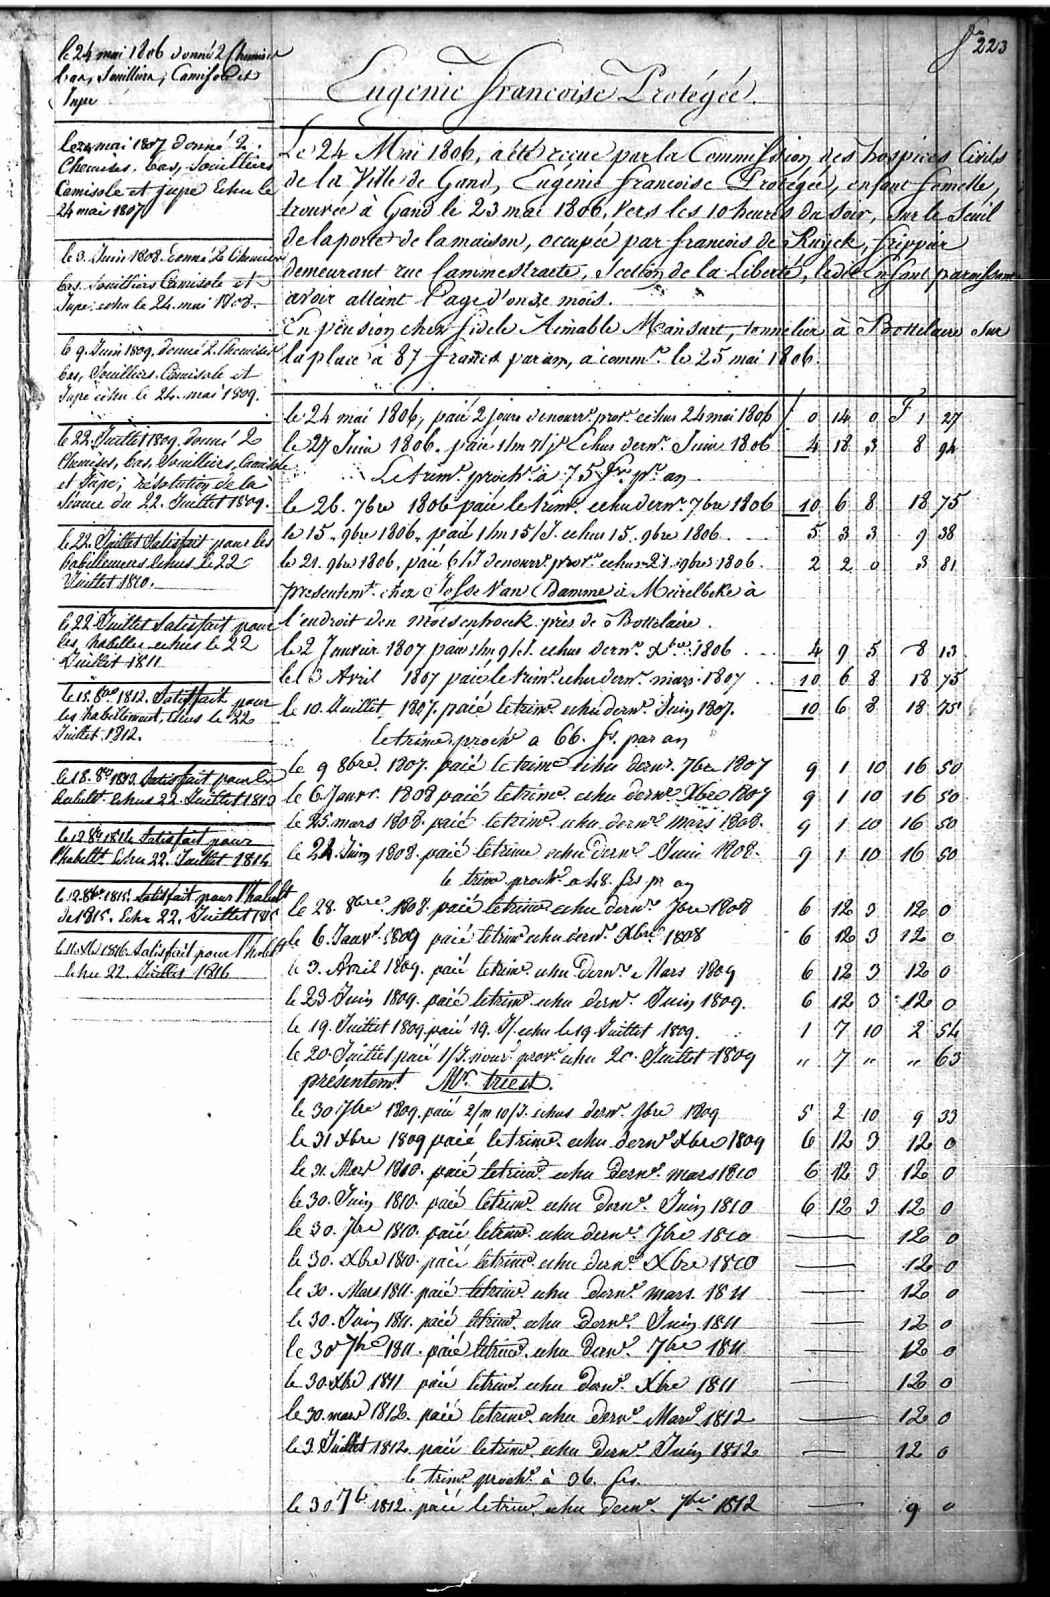 fo 223
le 24 mai 1806 donné 2 Chemises
bas, Souilliers, Camisole et
Jupe
le 24 mai 1807 donné 2
Chemises, bas, Souilliers
Camisole et jupe echu le
24 mai 1807
le 3. Juin 1808. donné 2 Chemises
bas. Souilliers Camisole et
Jupe. echu le 24. mai 1808.
le 9. Juin 1809. donné 2. Chemises
bas, Souilliers. Camisole et
Jupe echu le 24. mai 1809.
le 22. Juillet 1809. donné 2
Chemises, bas, Souilliers, Camisole
et Jupe; résolution de la
Séance du 22. Juillet 1809.
le 22. Juillet Satisfait pour les
habillemens echus le 22
Juillet 1810.
le 22 Juillet Satisfait pour
les habillem echus le 22
Juillet 1811
le 18. 8bre 1812. Satisfait pour
les habillement echus le 22
Juillet 1812.
le 18. 8bre 1813. Satisfait pour les
habillt. Echus 22. Juillet 1813
le 12 8bre 1814 Satisfait pour
l'habillt Echu 22. Juillet 1814
le 12 8bre 1815. Satisfait pour l'habillt
de 1815. Echu 22. Juillet 1815
le 11. 1816. Satisfait pour l'habillt
Echu 22. Juillet 1816
Eugenie Francoise Protégée.
Le 24 Mai 1806, a été reçue par la Commission des hospices Civils
de la Ville de Gand, Eugénie Francoise Protégée, enfant femelle,
trouvée à Gand le 23 mai 1806, vers les 10 heures du Soir, sur le Seuil
de la porte de la maison, occupée par francois de Ruyck, frippier
demeurant rue lammestraete, Section de la Liberté, ledit Enfant paroissant
avoir atteint l'age d'onze mois.
En pension chez fidele Aimable Mansart, tonnelier à Bottelaere sur
la place à 87 francs par an, à comm.r le 25 mai 1806.
le 24 mai 1806, paié 2 jours de nourr.e prov.e echus 24 mai 1806 / 0 14 0 F 1 27
le 27 Juin 1806. paié 1/m 7/j.s Echus dern.r Juin 1806 4 18 3 8 94
Le trim.e proch.n à 75 frs pr. an
le 26. 7bre 1806 paié le trim.e echu dern.r 7bre 1806 10 6 8 18 75
le 15. 9bre 1806. paié 1/m 15/J. echus 15. 9bre 1806. 5 3 3 9 38
le 21. 9bre 1806. paié 6/J de nourr.e prov.e echus 21. 9bre 1806. 2 2 0 3 81
presentem.t chez Josse Van Damme à Meirelbeke à
l'endroit den moesenhoek près de Bottelaire.
le 2 Janvier 1807 paié 1/m 9/J. echus dern.r Xbre 1806 4 9 5 8 13
le 3 Avril 1807 paié le trim.e echu dern.r mars 1807 10 6 8 18 75
le 10. Juillet 1807. paié le trim.e echu dern.r Juin 1807. 10 6 8 18 75
le trime. proch.n a 66. fs. par an
le 9 8bre. 1807. paié le trime echu dern.r 7bre 1807 9 1 10 16 50
le 6 Janvr. 1808 paié le trim.e echu dern.r Xbre 1807 9 1 10 16 50
le 25. mars 1808. paié le trim.e echu dern.r mars 1808. 9 1 10 16 50
le 24 Juin 1808. paié le trime echu dern.r Juin 1808. 9 1 10 16 50
le trim. proch.n à 48. frs pr an
le 28. 8bre. 1808. paié le trime echu dern.r 7bre 1808 6 12 3 12 0
le 6 Janv.r 1809 paié le trim.e echu dern.r Xbre 1808 6 12 3 12 0
le 3. Avril 1809. paié le trim.e echu dern.r Mars 1809 6 12 3 12 0
le 23 Juin 1809. paié le trim.e echu dern.r Juin 1809. 6 12 3 12 0
le 19. Juillet 1809 paié 19. J/. echu le 19 Juillet 1809. 1 7 10 2 54
le 20. Juillet paié 1/J. nour.e prov.e echu 20. Juillet 1809 " 7 " " 63
présentem.t Mr. triest.
le 30 7bre 1809. paié 2/m 10/J. echus dern.r 7bre 1809 5 2 10 9 33
le 31 Xbre 1809 paié le trim.e echu dern.r Xbre 1809 6 12 3 12 0
le 31. Mars 1810. paié le trim.e echu dern.r mars 1810 6 12 3 12 0
le 30. Juin 1810. paié le trim.e echu dern.r Juin 1810 6 12 3 12 0
le 30. 7bre 1810. paié le trim.e echu dern.r 7bre 1810 — 12 0
le 30. Xbre 1810. paié le trim.e echu dern.r Xbre 1810 — 12 0
le 30. Mars 1811. paié le trim.e echu dern.r mars. 1811 — 12 0
le 30. Juin 1811. paié le trim.e echu dern.r Juin 1811 — 12 0
le 30 7bre 1811. paié le trim.e echu dern.r 7bre 1811 — 12 0
le 30 Xbre 1811 paié le trim.e echu dern.r Xbre 1811 — 12 0
le 30. mars 1812. paié le trim.e echu dern.r Mars 1812 — 12 0
le 3 Juillet 1812. paié le trim.e echu dern.r Juin 1812 — 12 0
le trim.e proch.n à 36. frs.
le 30 7b 1812. paié le trim.e echu dern.r 7bre 1812 — 9 0